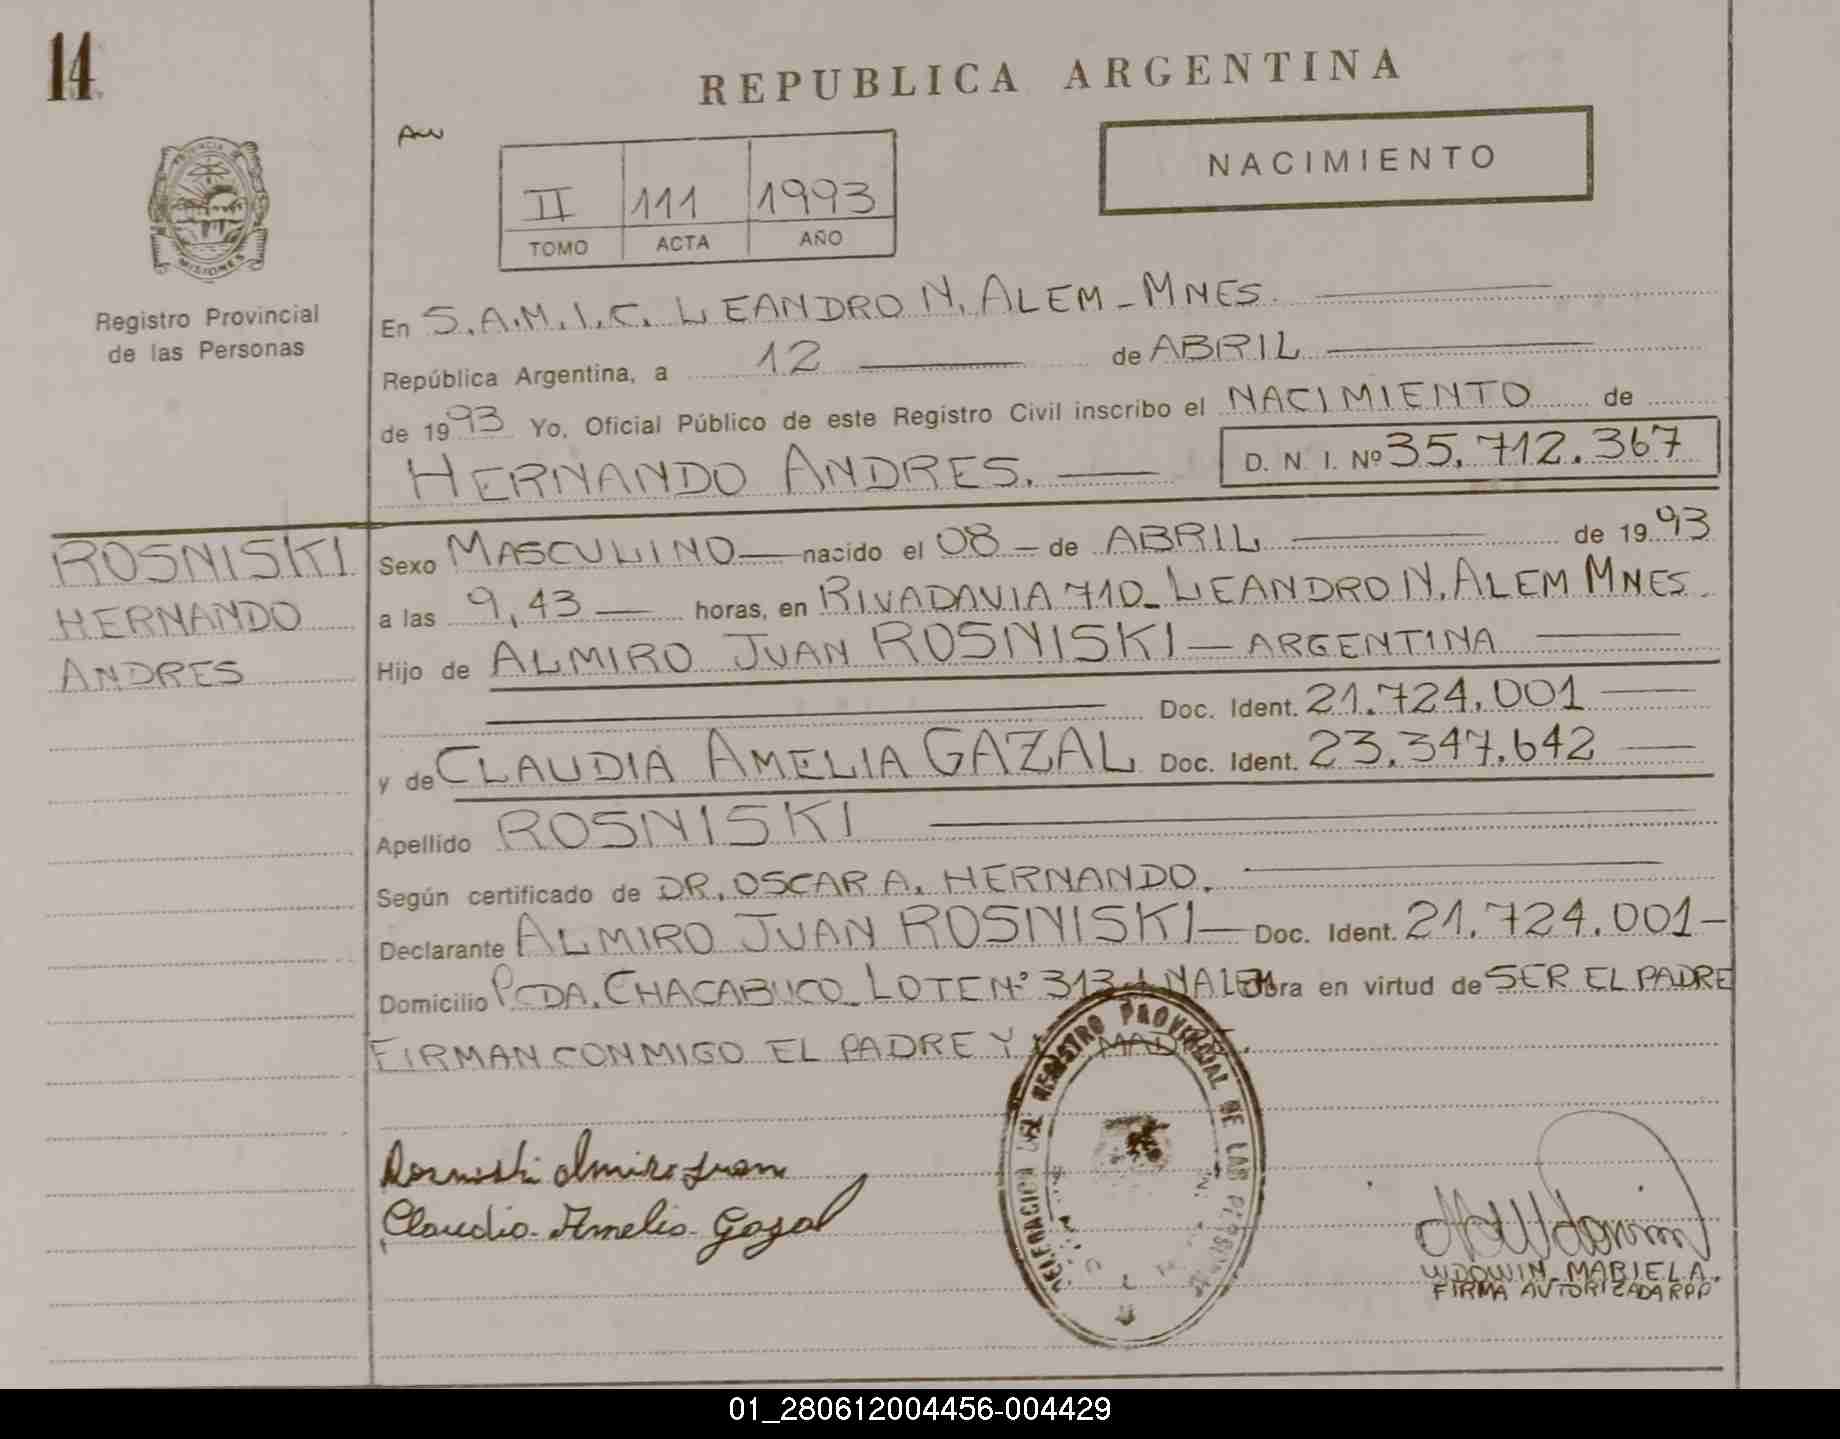 14
REPUBLICA ARGENTINA
NACIMIENTO
II 111 1993
TOMO ACTA AÑO
PROVINCIA DE
MISIONES
Registro Provincial
de las Personas
En S.A.M.I.C. LEANDRO N. ALEM - MNES.
República Argentina, a 12 de ABRIL
de 1993 Yo, Oficial Público de este Registro Civil inscribo el NACIMIENTO de
HERNANDO ANDRES. D. N. I. Nº 35.712.367
ROSNISKI
HERNANDO
ANDRES
Sexo MASCULINO nacido el 08 de ABRIL de 1993
a las 9,43 horas, en RIVADAVIA 710 - LEANDRO N. ALEM MNES.
Hijo de ALMIRO JUAN ROSNISKI - ARGENTINA
Doc. Ident. 21.724.001
y de CLAUDIA AMELIA GAZAL Doc. Ident. 23.347.642
Apellido ROSNISKI
Según certificado de DR. OSCAR A. HERNANDO.
Declarante ALMIRO JUAN ROSNISKI - Doc. Ident. 21.724.001 -
Domicilio PCDA. CHACABUCO - LOTE Nº 313 - L N ALEM Obra en virtud de SER EL PADRE
FIRMAN CONMIGO EL PADRE Y LA MADRE.
DELEGACION DEL REGISTRO PROVINCIAL DE LAS PERSONAS
Rosniski Almiro Juan
Claudia Amelia Gazal
WDOWIN MARIELA.
FIRMA AUTORIZADA RPP
01_280612004456-004429